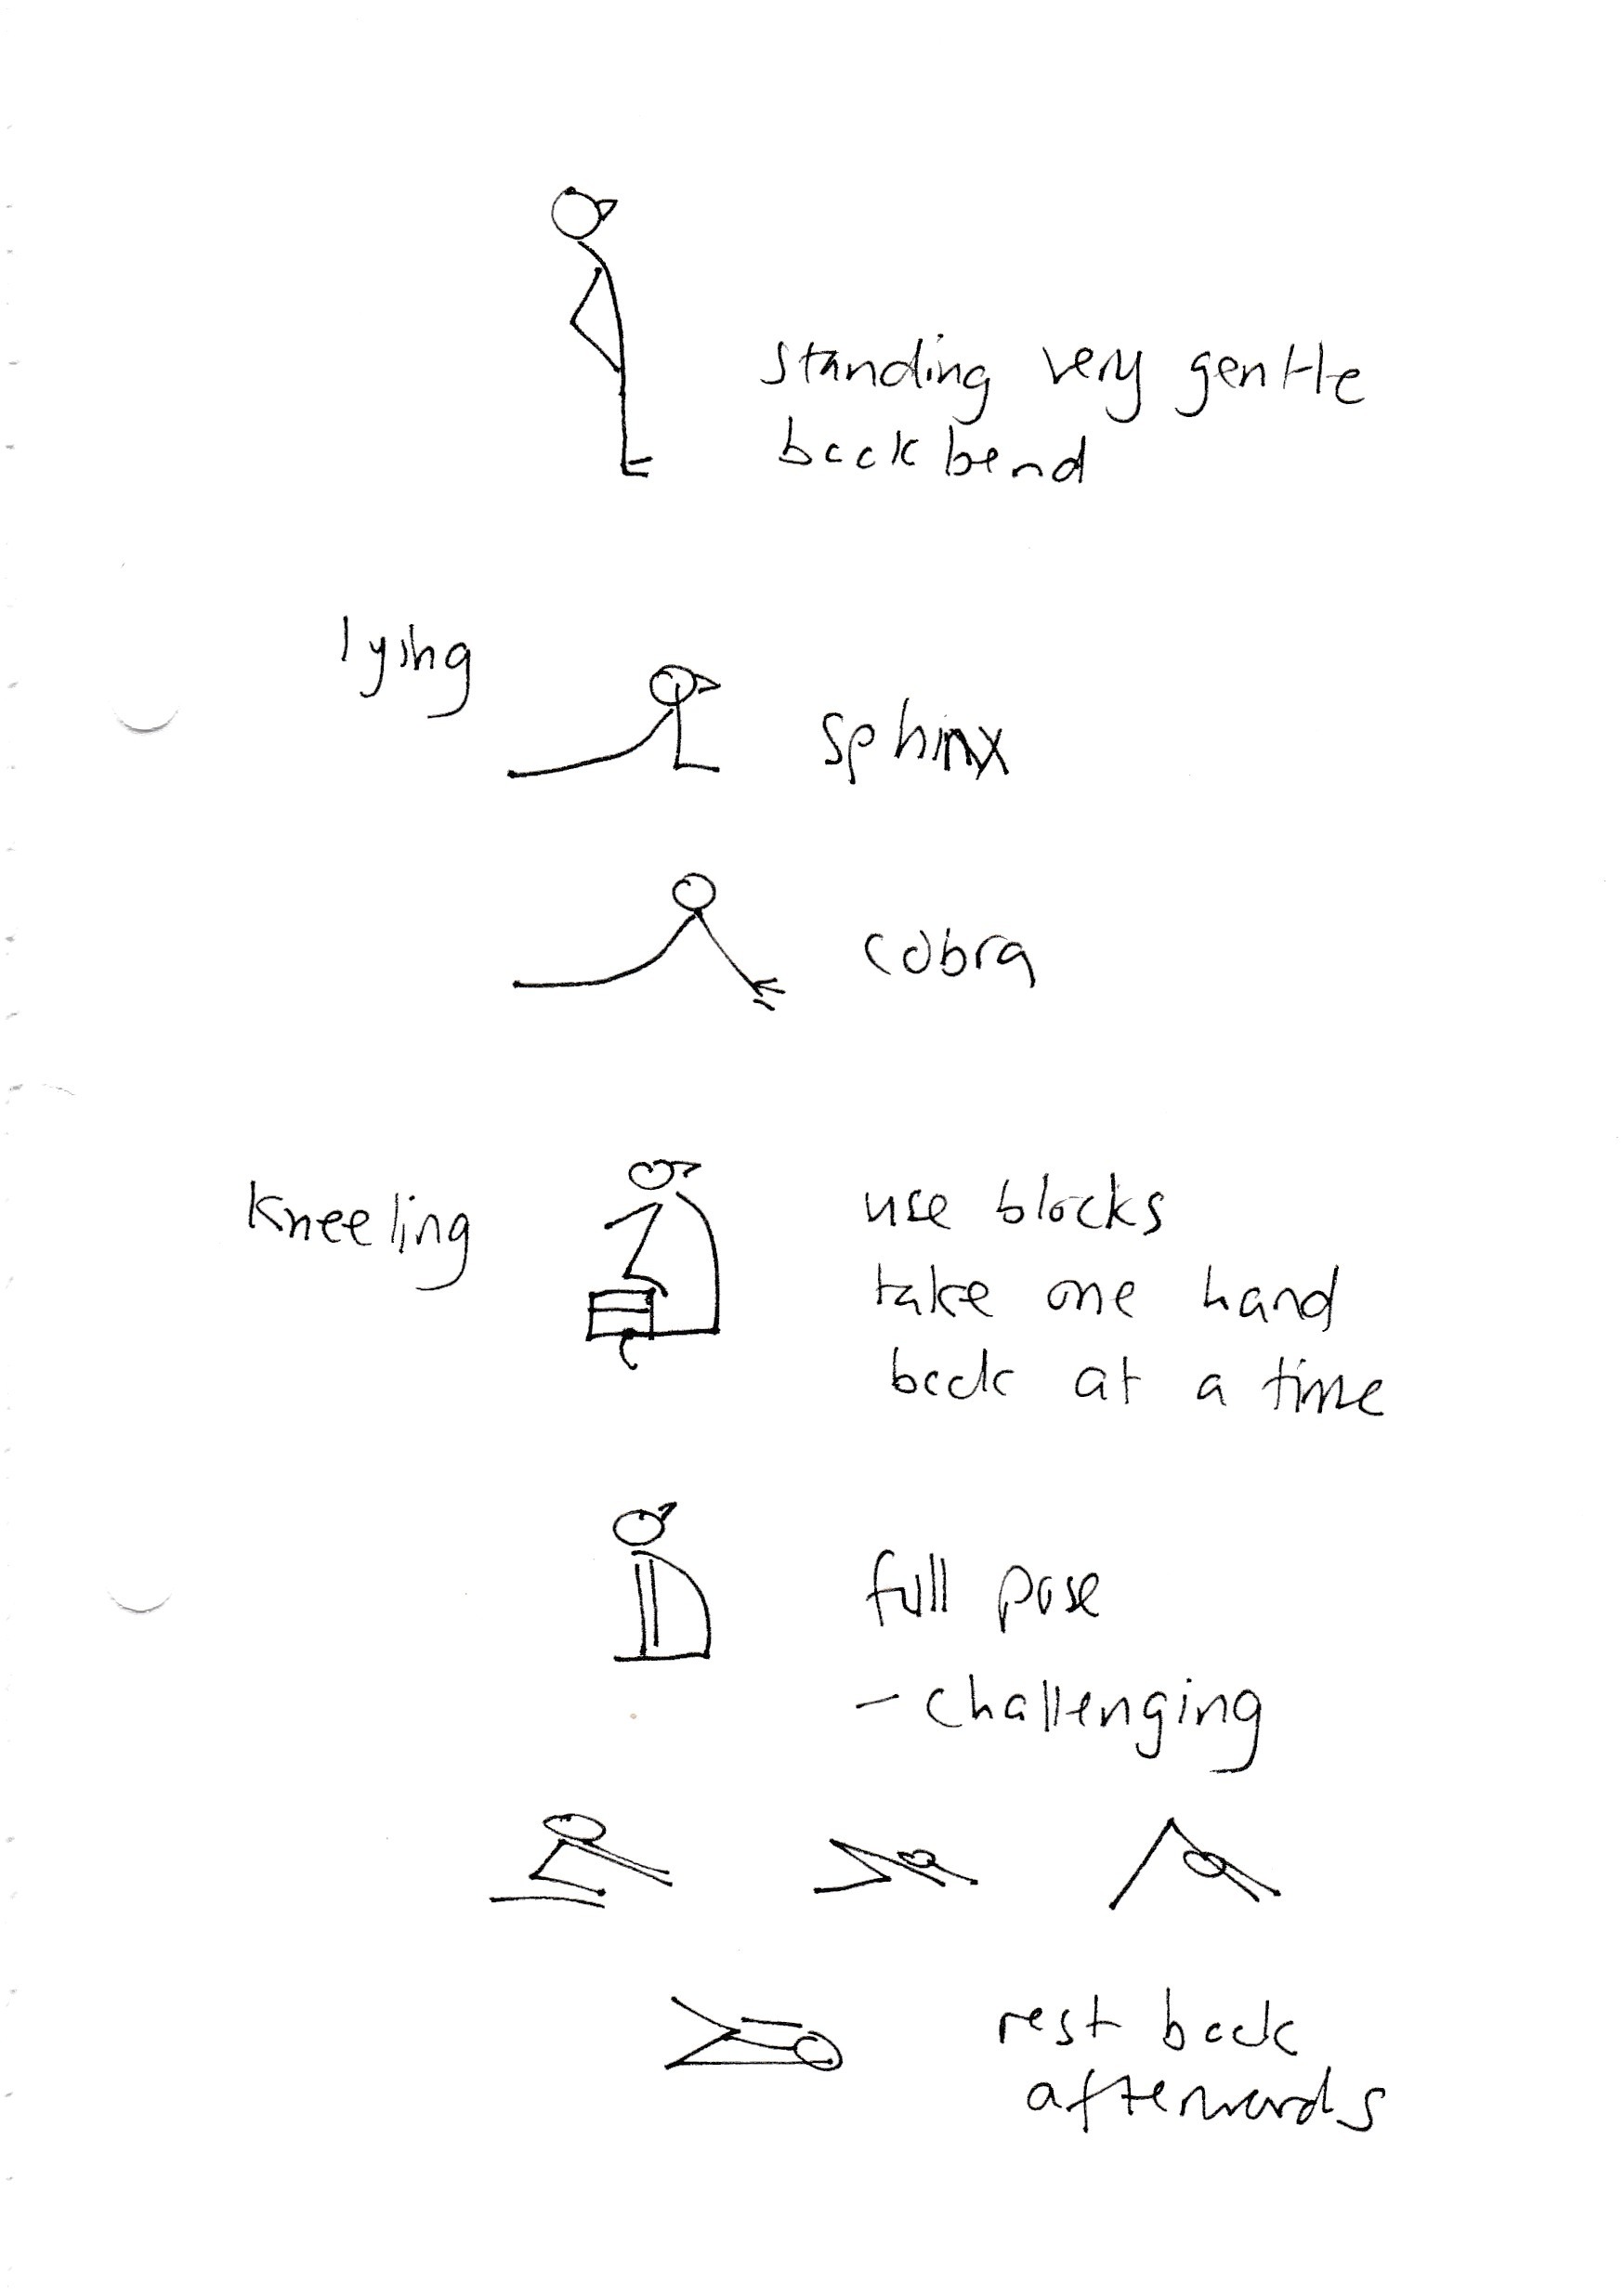 standing very gentle
back bend
lying
sphinx
cobra
kneeling
use blocks
take one hand
back at a time
full pose
- challenging
rest back
afterwards